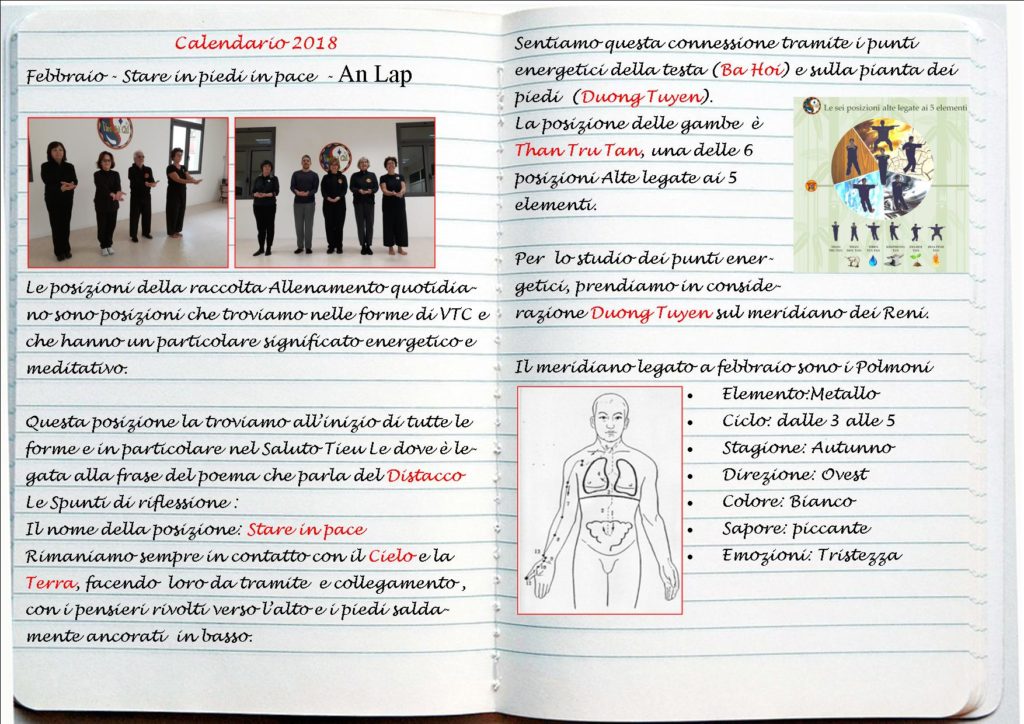 Calendario 2018
Febbraio - Stare in piedi in pace - An Lap
Le posizioni della raccolta Allenamento quotidia-
no sono posizioni che troviamo nelle forme di VTC e
che hanno un particolare significato energetico e
meditativo.
Questa posizione la troviamo all'inizio di tutte le
forme e in particolare nel Saluto Tieu Le dove è le-
gata alla frase del poema che parla del Distacco
Le Spunti di riflessione :
Il nome della posizione: Stare in pace
Rimaniamo sempre in contatto con il Cielo e la
Terra, facendo loro da tramite e collegamento ,
con i pensieri rivolti verso l'alto e i piedi salda-
mente ancorati in basso.
Sentiamo questa connessione tramite i punti
energetici della testa (Ba Hoi) e sulla pianta dei
piedi (Duong Tuyen).
La posizione delle gambe è
Than Tru Tan, una delle 6
posizioni Alte legate ai 5
elementi.
Le sei posizioni alte legate ai 5 elementi
Per lo studio dei punti ener-
getici, prendiamo in conside-
razione Duong Tuyen sul meridiano dei Reni.
Il meridiano legato a febbraio sono i Polmoni
• Elemento:Metallo
• Ciclo: dalle 3 alle 5
• Stagione: Autunno
• Direzione: Ovest
• Colore: Bianco
• Sapore: piccante
• Emozioni: Tristezza